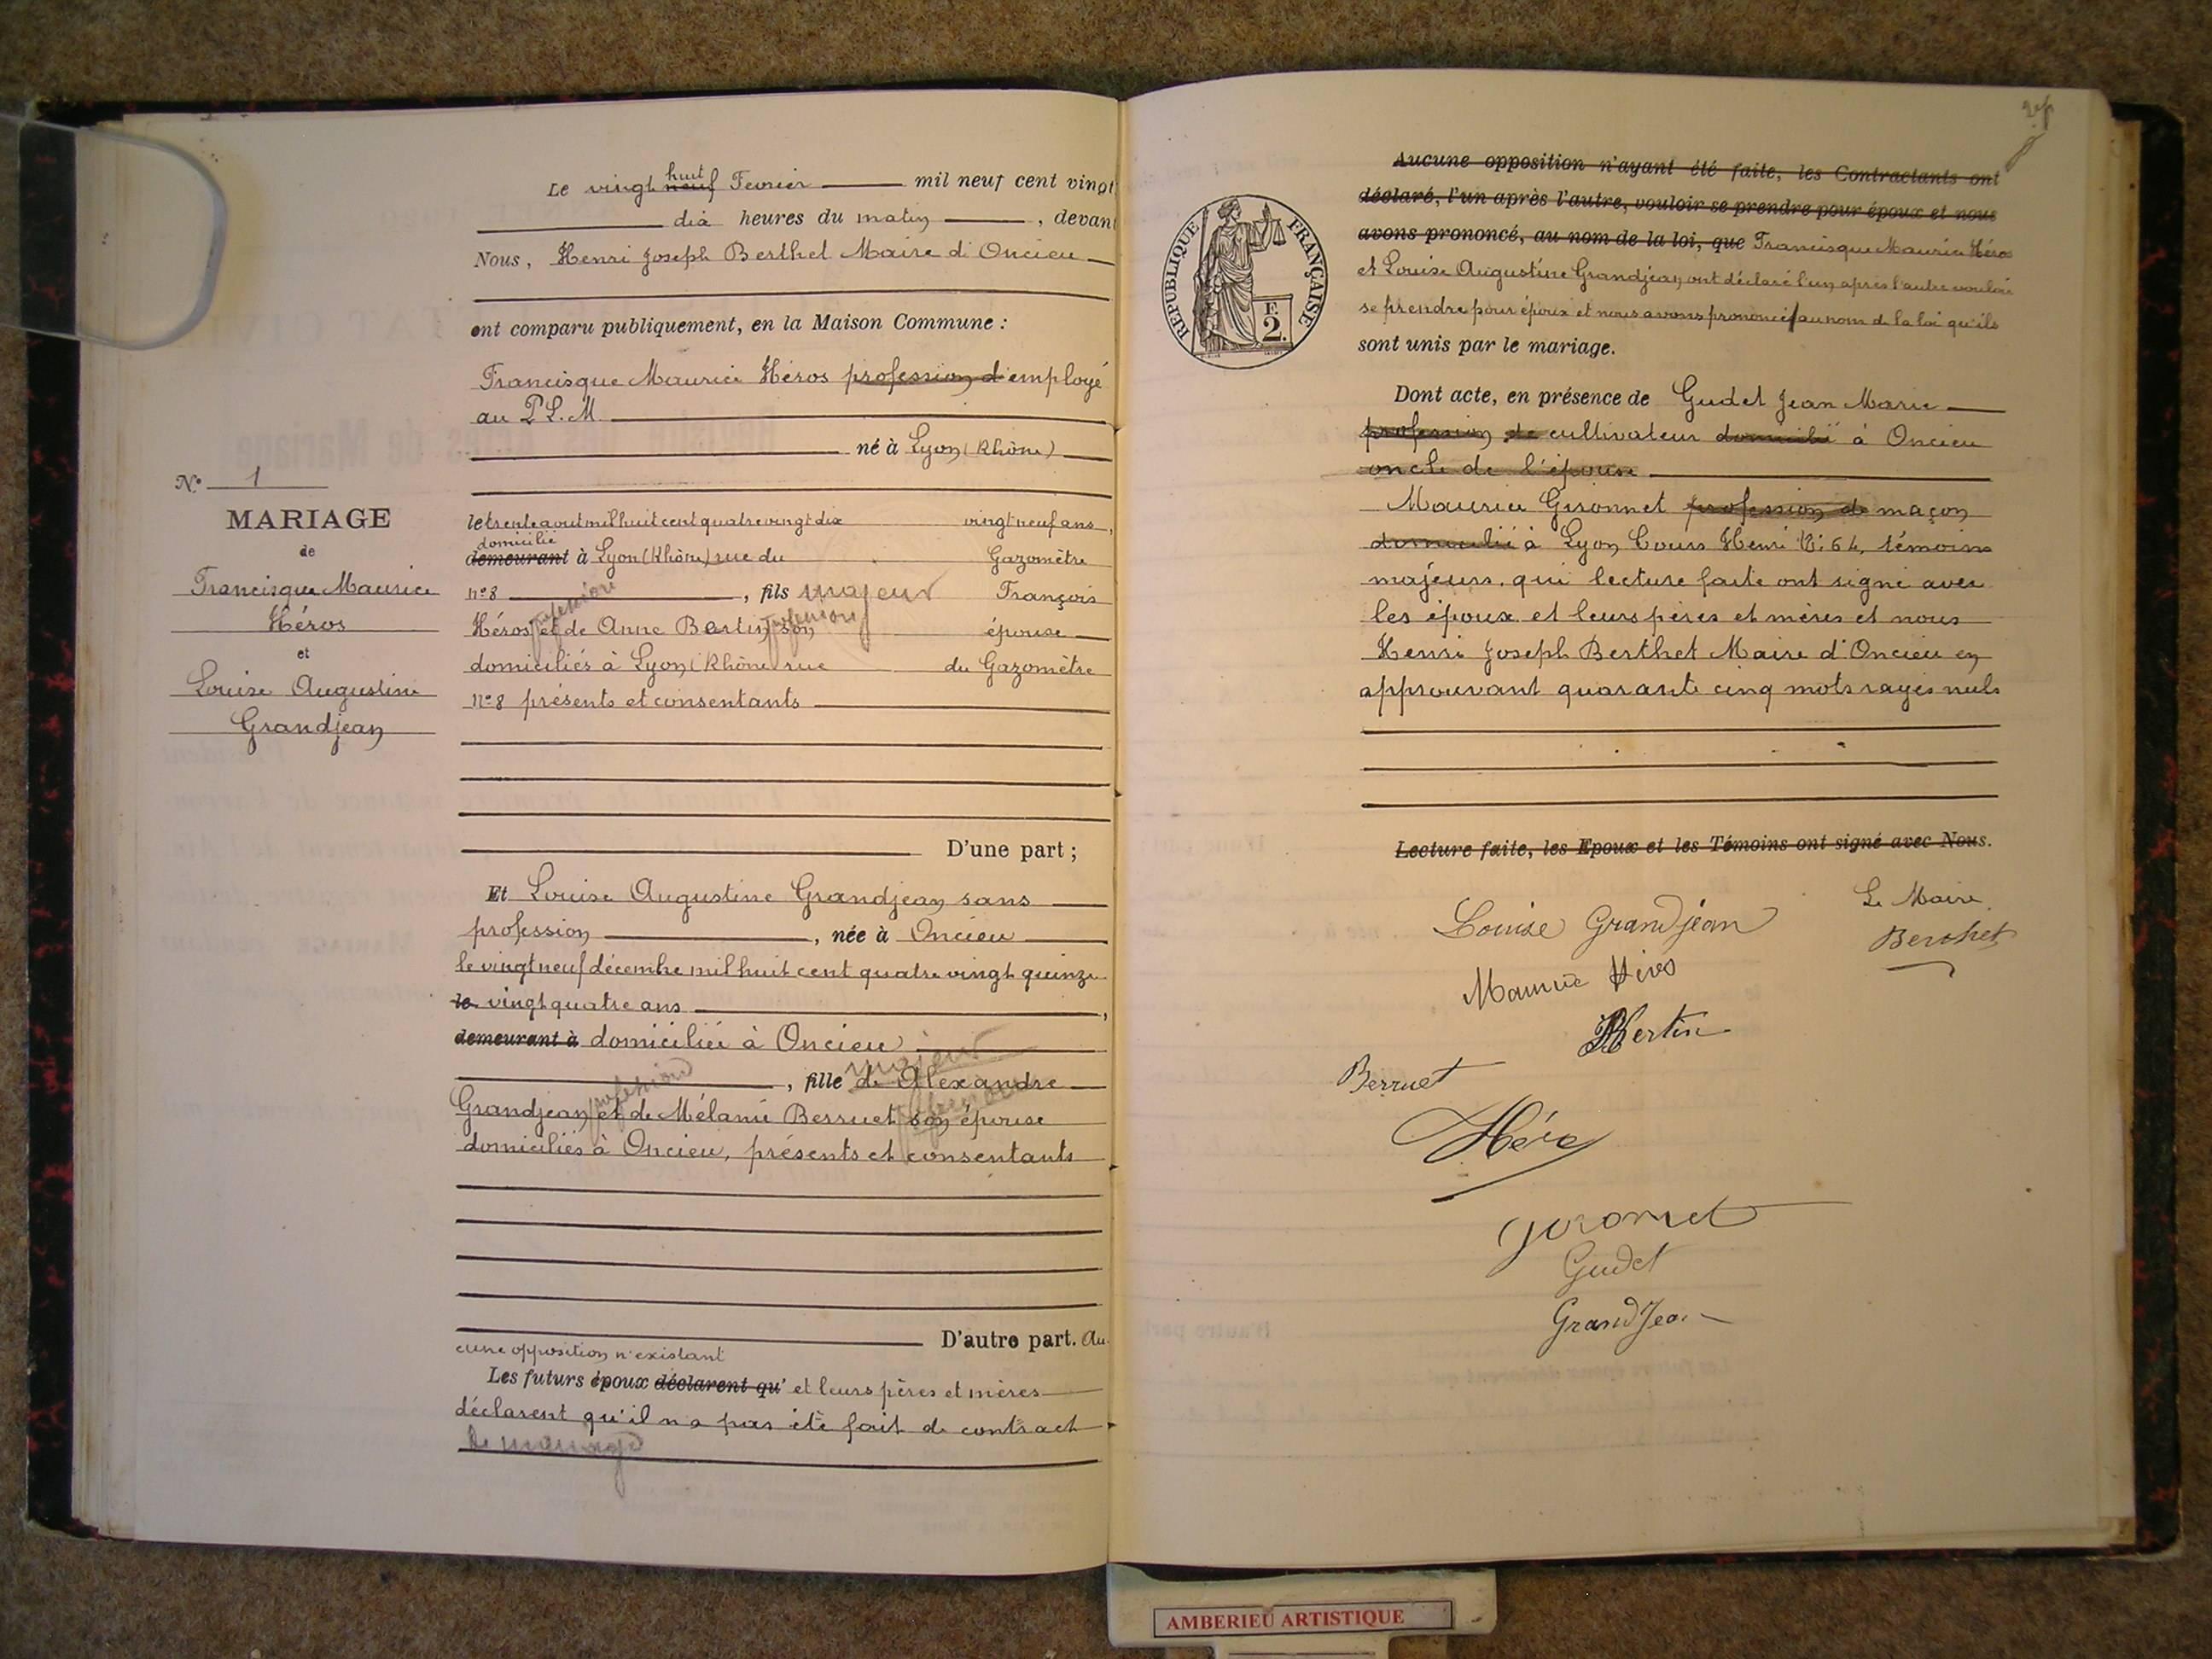 Le vingt huit neuf Fevrier mil neuf cent vingt
dix heures du matin, devant
Nous, Henri Joseph Berthet Maire d'Oncieu
ont comparu publiquement, en la Maison Commune :
Francisque Maurice Héros profession d'employé
au P.L.M.
né à Lyon (Rhône)
le trente aout mil huit cent quatre vingt dix vingt neuf ans,
domicilié
demeurant à Lyon (Rhône) rue du Gazomètre
n°8, fils majeur François
profession profession
Héros et de Anne Bertin son épouse
domiciliés à Lyon (Rhône) rue du Gazomètre
n°8 présents et consentants
D'une part ;
Et Louise Augustine Grandjean sans
profession, née à Oncieu
le vingt neuf décembre mil huit cent quatre vingt quinze
le vingt quatre ans,
demeurant à domiciliée à Oncieu
majeur
profession, fille de Alexandre
Grandjean et de Mélanie Berruet son épouse
profession
domiciliés à Oncieu, présents et consentants
D'autre part. Au
cune opposition n'existant
Les futurs époux déclarent qu' et leurs pères et mères
déclarent qu'il n'a pas été fait de contract
de mariage
N° 1
MARIAGE
de
Francisque Maurice
Héros
et
Louise Augustine
Grandjean
RÉPUBLIQUE FRANÇAISE
2
F.
Aucune opposition n'ayant été faite, les Contractants ont
déclaré, l'un après l'autre, vouloir se prendre pour époux et nous
avons prononcé, au nom de la loi, que Francisque Maurice Héros
et Louise Augustine Grandjean ont déclaré l'un après l'autre vouloir
se prendre pour époux et nous avons prononcé au nom de la loi qu'ils
sont unis par le mariage.
Dont acte, en présence de Gudet Jean Marie
profession de cultivateur domicilié à Oncieu
oncle de l'épouse
Maurice Gironnet profession de maçon
domicilié à Lyon Cours Henri N° 64, témoins
majeurs, qui lecture faite ont signé avec
les époux et leurs pères et mères et nous
Henri Joseph Berthet Maire d'Oncieu en
approuvant quarante cinq mots rayés nuls
Lecture faite, les Epoux et les Témoins ont signé avec Nous.
Louise Grandjean
Le Maire
Berthet
Maurice Héros
Bertin
Berruet
Héros
Gironnet
Gudet
GrandJean
AMBERIEU ARTISTIQUE